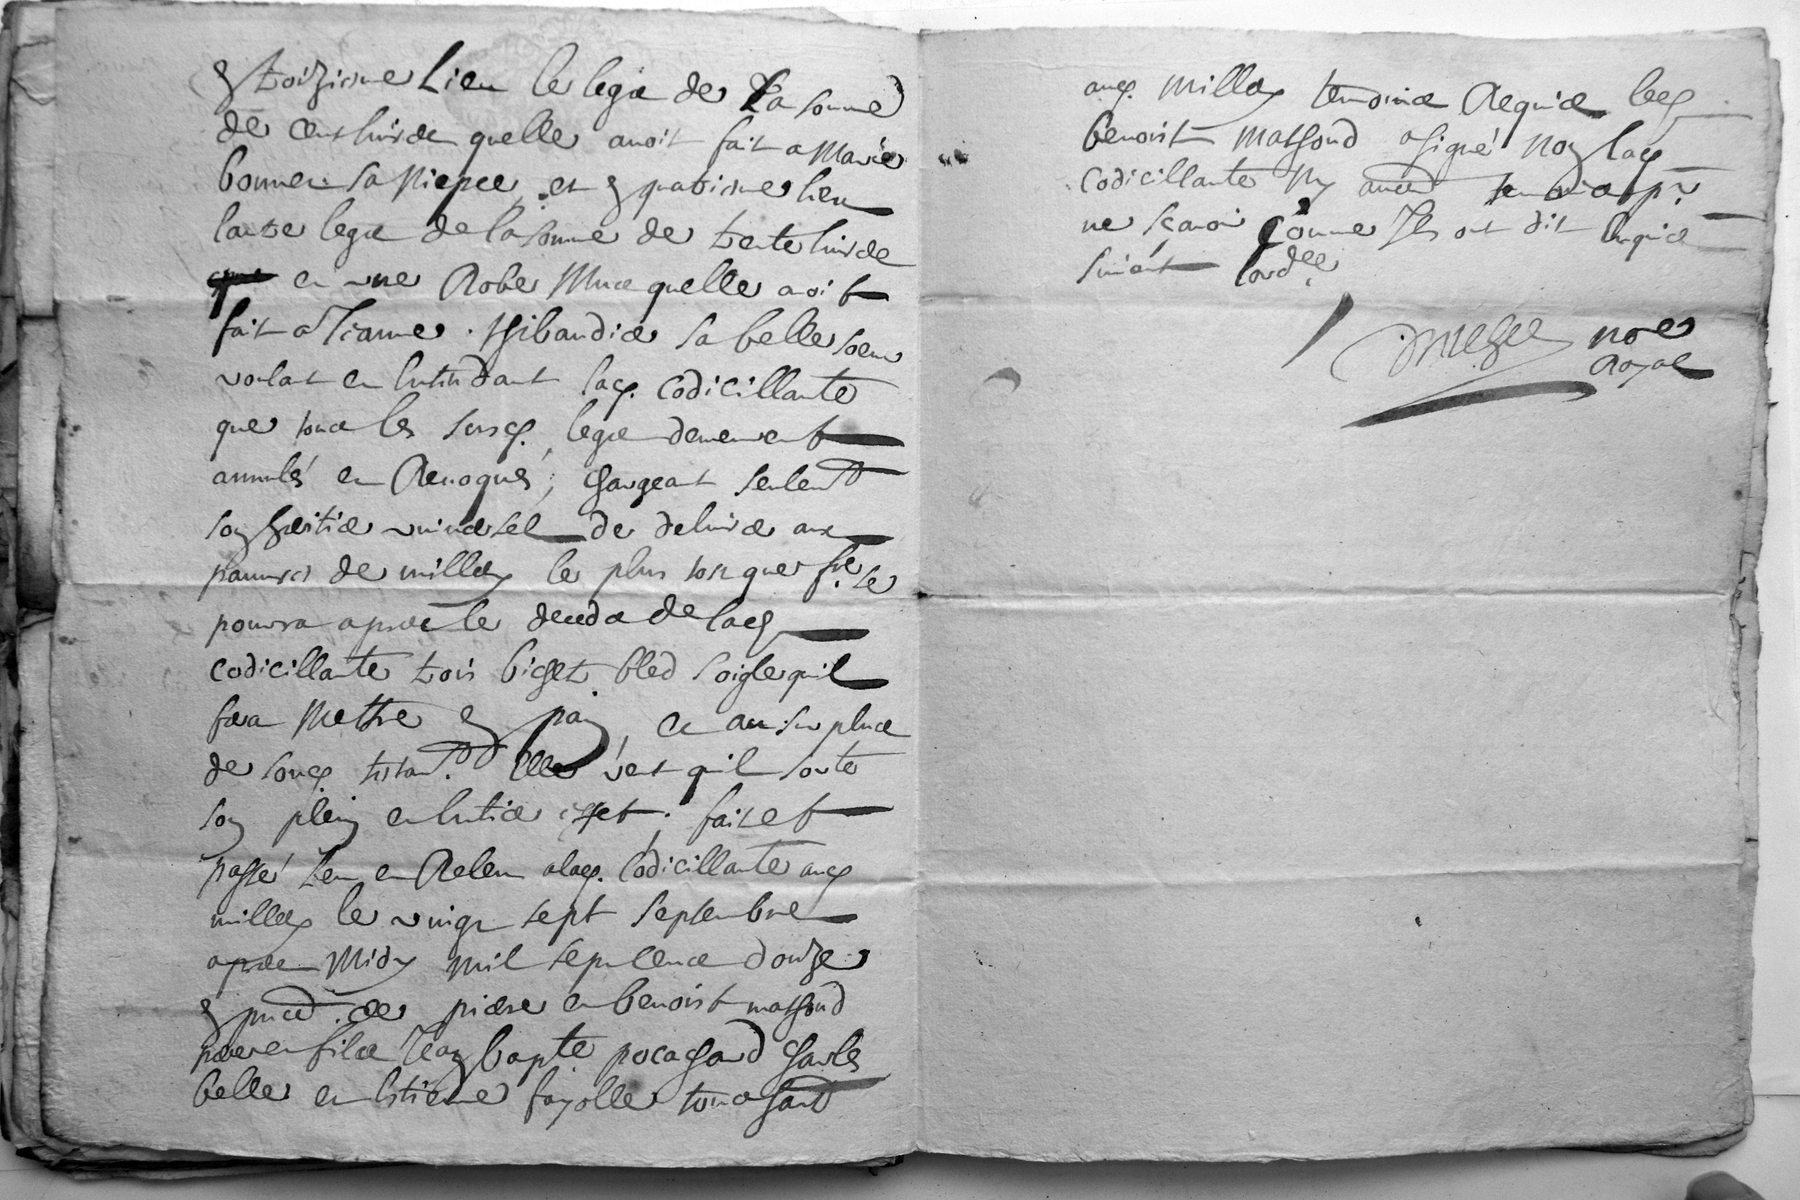 & troizieme Lieu le legat de La somme
de cent livres quelle avoit fait a Marie
bonnet sa Niepce, et & quatrieme lieu
lautre legat de la somme de trente livres
et une Robe Nuve quelle avoit
fait a Jeanne Thibaudier sa belle soeur
voulant et entendant lad. codicillante
que tous les susd. legat demeurent
annulés et Revoqués, chargeant seulemt
son heritier universel de delivrer aux
pauvres de millery le plus tost que fre se
pourra apres le deceds de lad
codicillante trois bichet bled soigle quil
fera Mettre en pain, et au surplus
de sond testamt. Elle veut quil sorte
son plein et entier effet, fait et
passé Leu et Releu a lad. Codicillante aud
millery le vingt sept septembre
apres Midy Mil sept cents douze
en pnce de pierre et benoist matsond
pere et fils Jean bapte pocachard Charles
belle et estienne fayolle tous hants
aud. Millery temoins Requis led
benoist Matsond a signé Non lad
Codicillante Ny autres temoins pr
ne scavoir Comme Ils ont dit Enquis
suivant lordce
nore
Royal